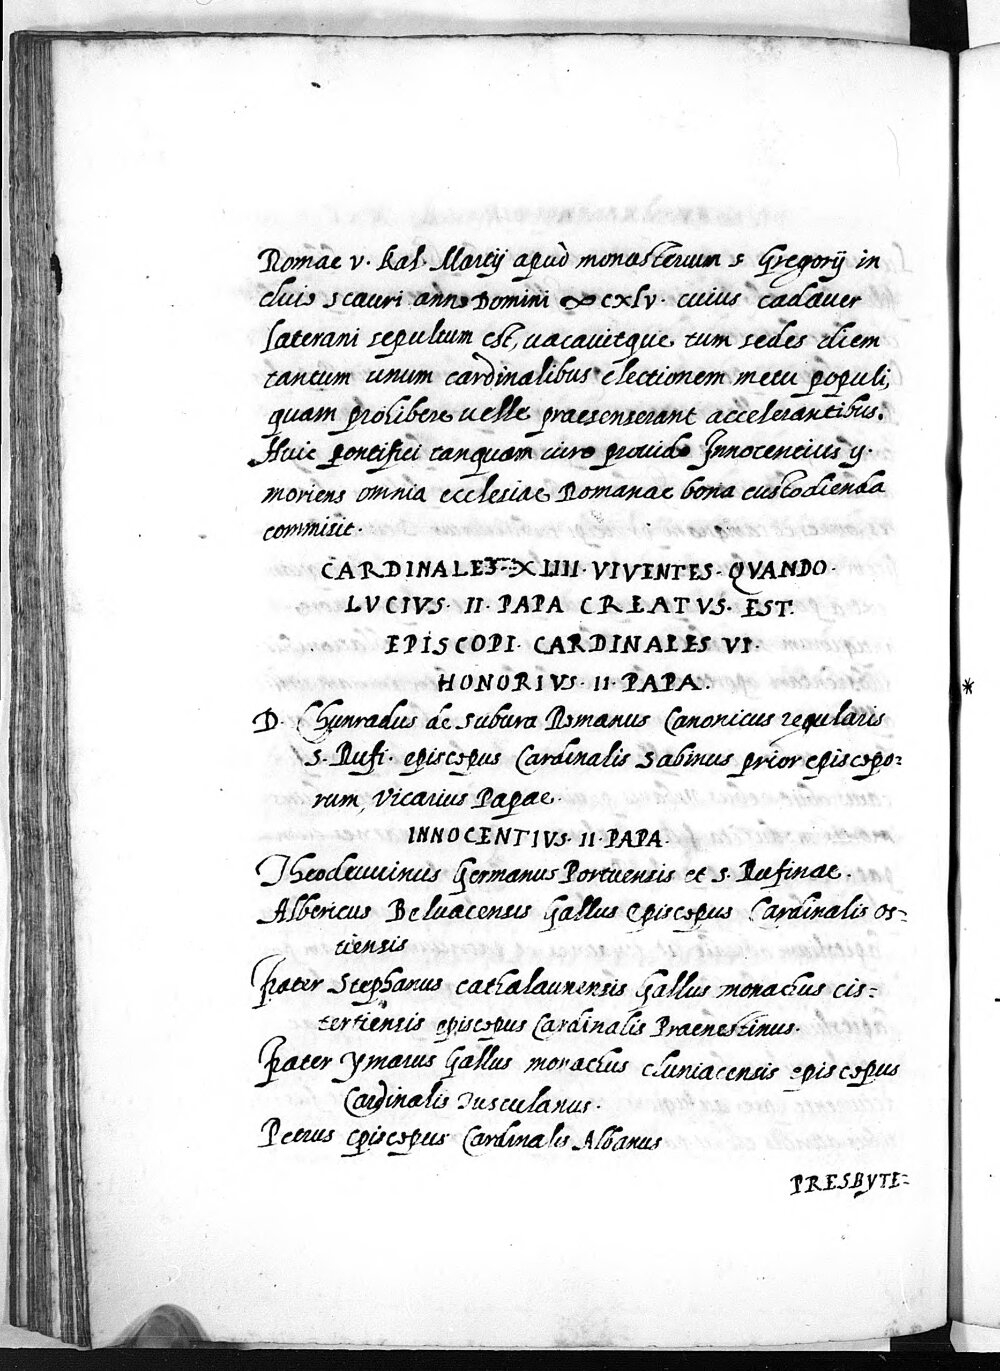 Romae v. Kal. Martij apud monasterium s Gregorij in
cliuo scauri anno Domini ∞ cxlv. cuius cadauer
laterani sepultum est, uacauitque tum sedes diem
tantum unum cardinalibus electionem metu populi,
quam prohibere uelle praesenserant accelerantibus.
Huic pontifici tanquam uiro prouido Innocentius ij.
moriens omnia ecclesiae Romanae bona custodienda
commisit.
CARDINALES XIIII. VIVENTES. QVANDO.
LVCIVS. II. PAPA CREATVS. EST.
EPISCOPI. CARDINALES VI.
HONORIVS. II. PAPA.
D. Chunradus de subura Romanus Canonicus regularis
s. Rufi. episcopus Cardinalis Sabinus prior episcopo=
rum, Vicarius Papae.
INNOCENTIVS. II. PAPA.
Theodeuuinus Germanus Portuensis et s. Rufinae.
Albericus Beluacensis Gallus episcopus Cardinalis Os=
tiensis
frater Stephanus cathalaunensis Gallus monachus cis=
tertiensis episcopus Cardinalis Praenestinus.
frater Ymarus Gallus monachus cluniacensis episcopus
Cardinalis Tusculanus.
Petrus episcopus Cardinalis Albanus
PRESBYTE=